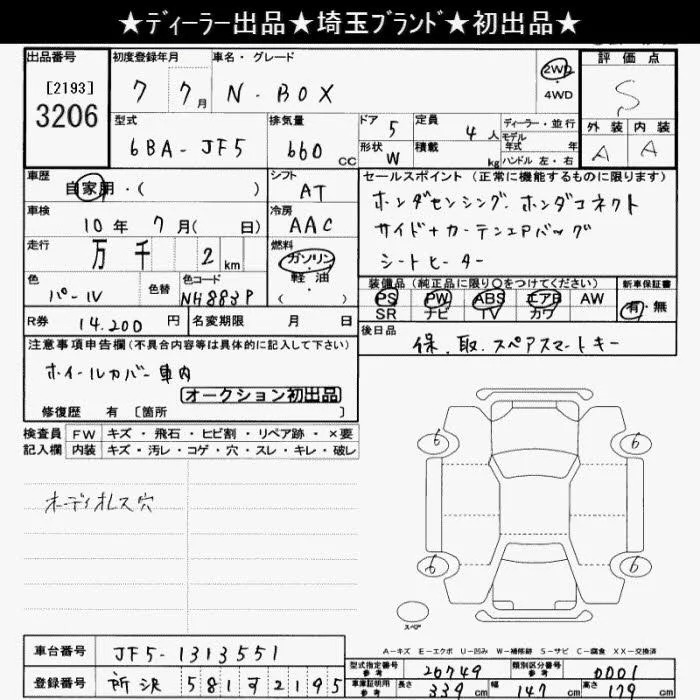 ★ディーラー出品★埼玉ブランド★初出品★
出品番号
[2193]
3206
初度登録年月
7 7月
車名・グレード
N-BOX
2WD
4WD
評価点
S
外装 内装
A A
型式
6BA-JF5
排気量
660 CC
ドア 5
形状 W
定員 4人
積載 kg
ディーラー・並行
モデル年式 年
ハンドル 左・右
車歴
自家用・( )
シフト
AT
車検
10年 7月( 日)
冷房
AAC
走行
万 千 2 km
燃料
ガソリン
・
軽油
( )
色
パール
色替
色コード
NH883P
R券 14.200 円
名変期限 月 日
セールスポイント (正常に機能するものに限ります)
ホンダセンシング. ホンダコネクト
サイド+カーテンエアバッグ
シートヒーター
装備品 (純正品に限り○をつけてください)
PS PW ABS エアB AW
SR ナビ TV カワ
新車保証書
有・無
後日品
保.取.スペアスマートキー
注意事項申告欄(不具合内容等は具体的に記入して下さい)
ホイールカバー車内
オークション初出品
修復歴 有 [箇所 ]
検査員 FW キズ・飛石・ヒビ割・リペア跡・×要
記入欄 内装 キズ・汚レ・コゲ・穴・スレ・キレ・破レ
オーディオレス穴
6 6
6 6
スペア
A-キズ E-エクボ U-凹み W-補修跡 S-サビ C-腐食 XX-交換済
車台番号 JF5-1313551
登録番号 所沢 581 す 2195
型式指定番号 参考 20749
類別区分番号 参考 0001
車庫証明用 参考 長さ 339 cm 幅 147 cm 高さ 179 cm